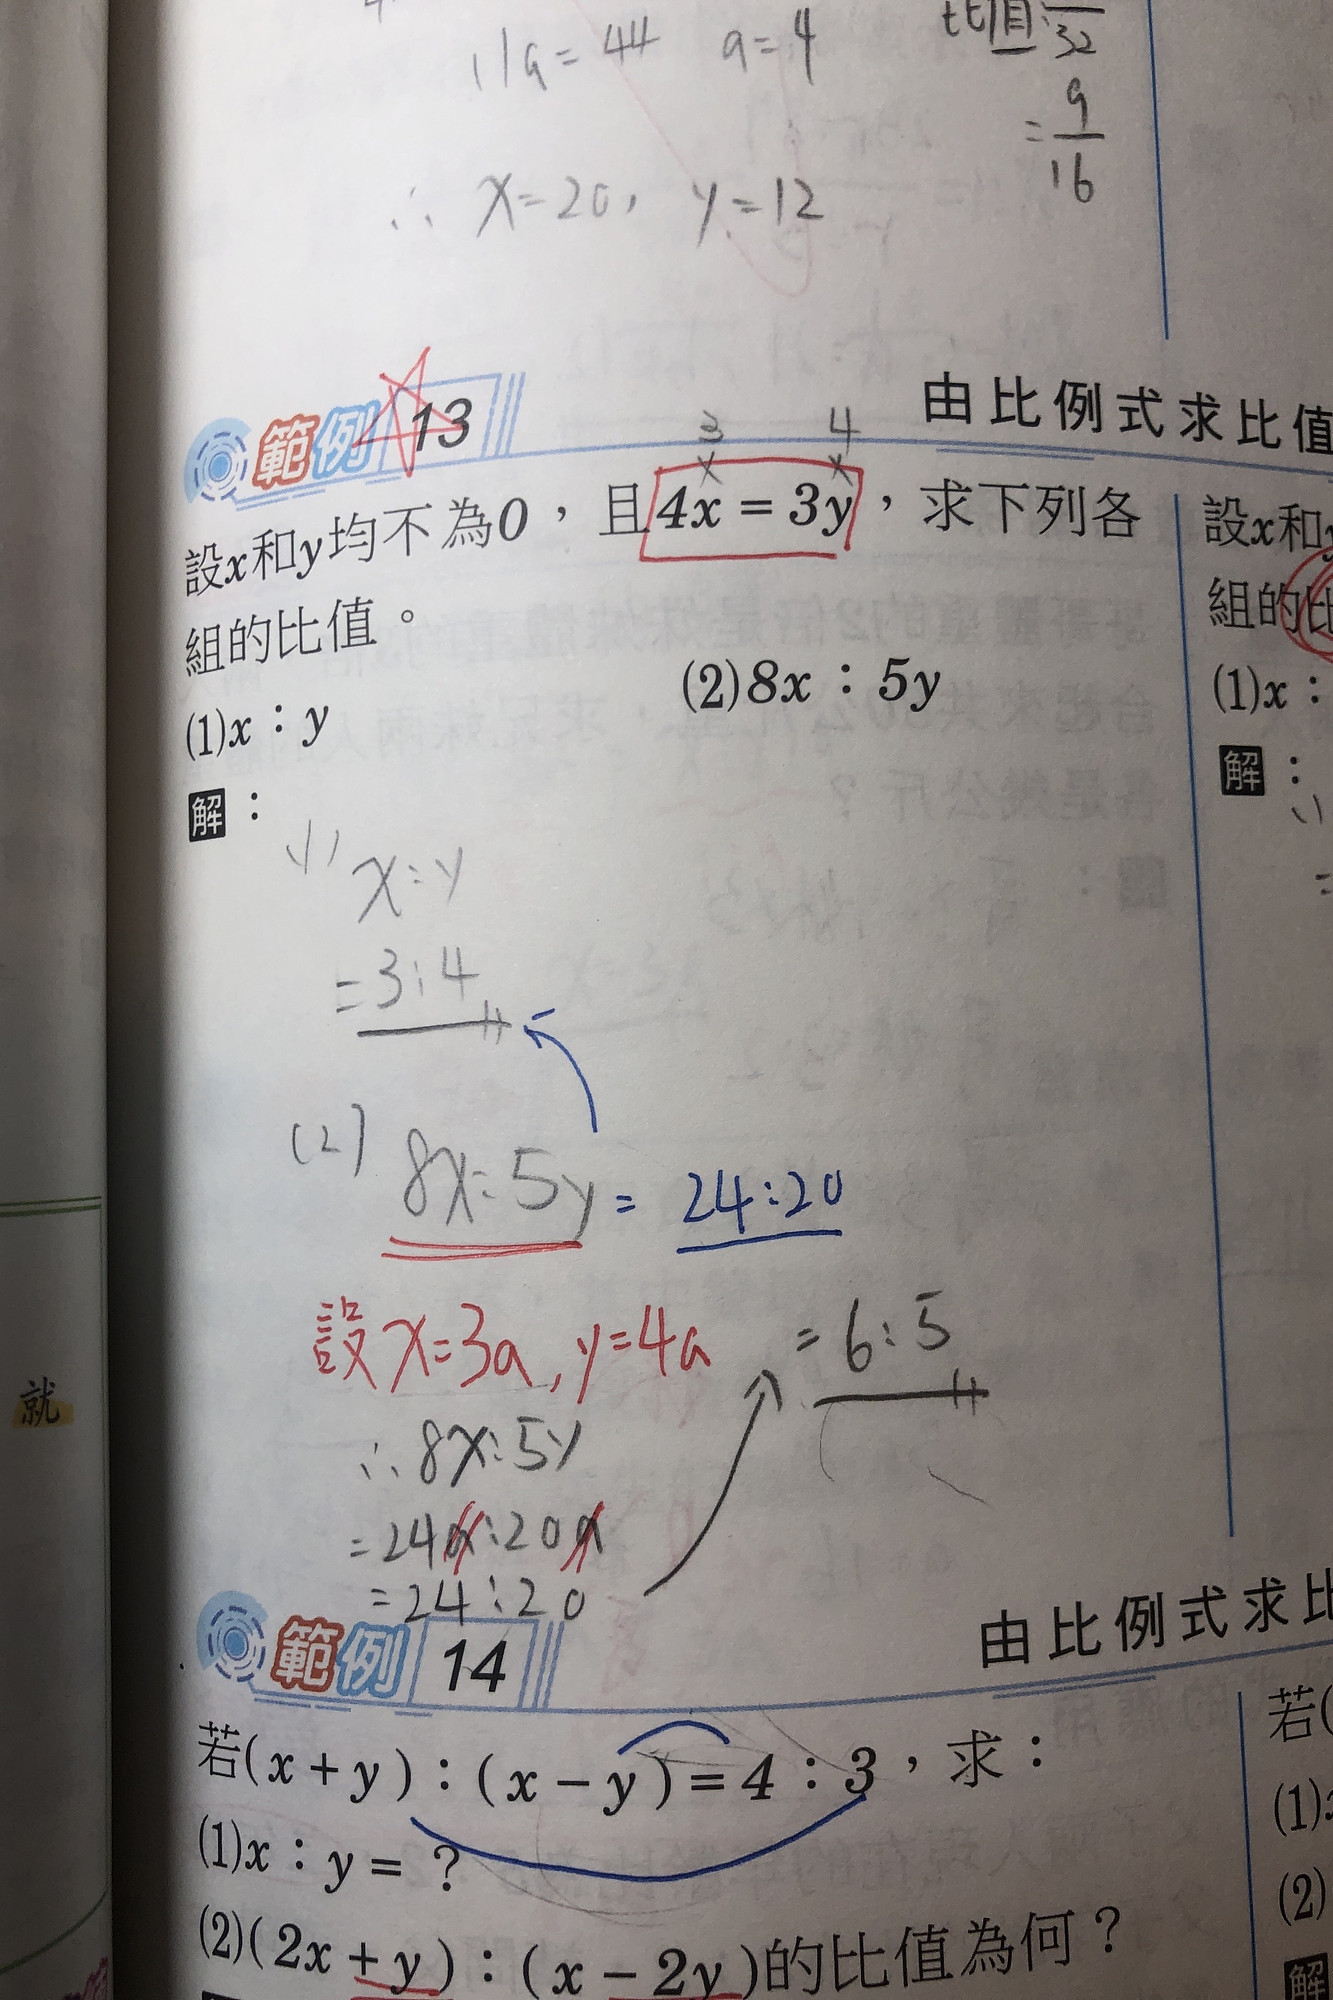 11a=44 a=4
比值:
32
=9/16
∴ x=20, y=12
範例 13 由比例式求比值
3 4
× ×
設x和y均不為0，且4x=3y，求下列各
組的比值。
(1)x：y (2)8x：5y
解：
(1) x:y
=3:4
(2) 8x:5y = 24:20
=6:5
設x=3a,y=4a
∴8x:5y
=24a:20a
=24:20
範例 14 由比例式求比
若(x+y)：(x−y)=4：3，求：
(1)x：y=？
(2)(2x+y)：(x−2y)的比值為何？
設x和y
組的比
(1)x：
解：
若(
(1)
(2)
解
就